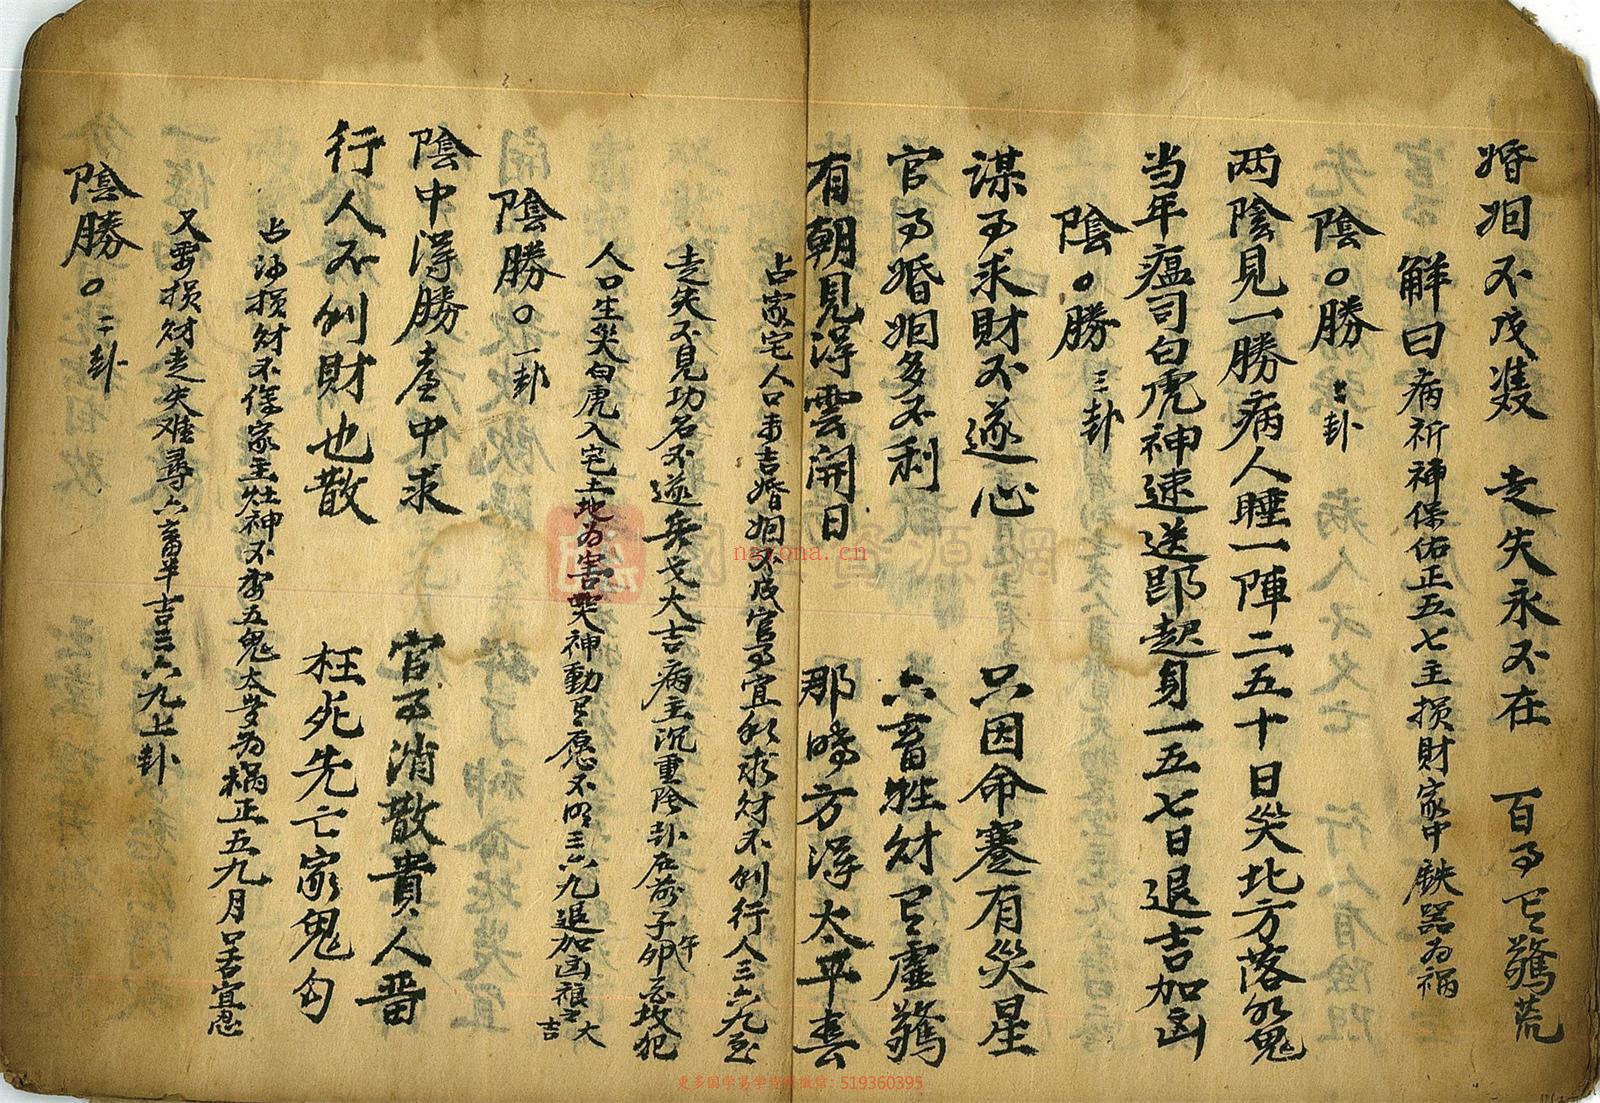 婚姻不成雙 走失永不在 百事官驚荒
解曰病祈神保佑正五七主損財家中鉄器為禍
陰〇勝 二卦
两陰見一勝病人睡一陣二五十日災北方落水鬼
当年瘟司白虎神速送即起身一五七日退吉加凶
陰〇勝 三卦
謀事求財不遂心 只因命蹇有災星
官事婚姻多不利 六畜牲財官虛驚
有朝見得雲開日 那時方得太平春
占家宅人口未吉婚姻不成官事宜和求財不利行人三六九至
走失不見功名不遂 大吉病主沉重陰卦在前子午卯 犯
人口生災白虎入宅土地为害哭神動 愿不明三六九退加凶禳之大吉
陰勝〇一卦
陰中得勝 中求 官事消散貴人晋
行人不利財也散 枉死先亡家鬼勾
占 損財不保家主灶神不安五鬼太岁为祸正五九月口舌宜忍
又要損财走失难尋六畜平吉三六九上卦
陰勝〇二卦
國學資源網
nayona.cn
更多国学易学资料微信：519360395